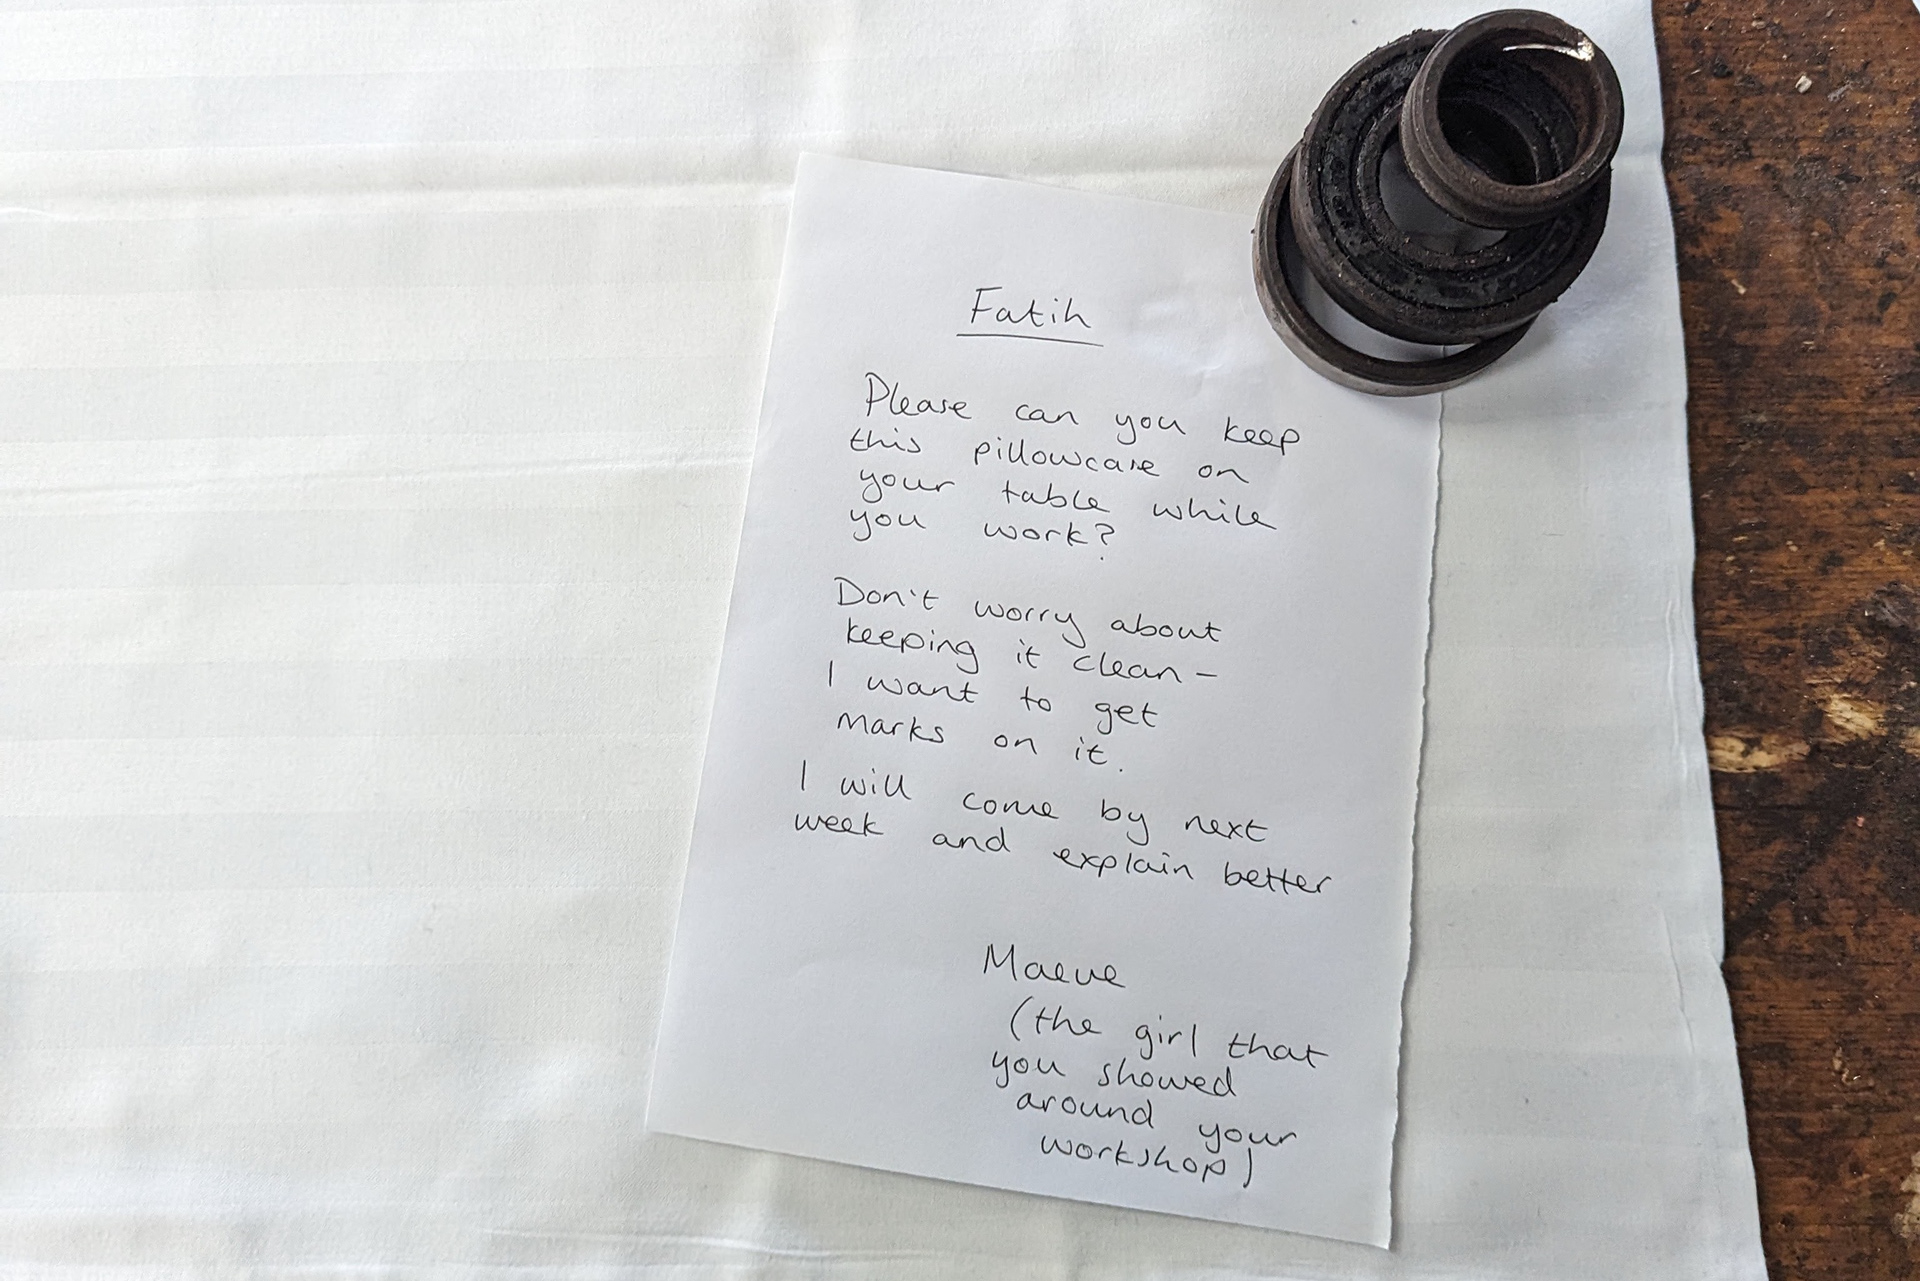 Fatih
Please can you keep
this pillowcase on
your table while
you work?
Don't worry about
keeping it clean -
I want to get
marks on it.
I will come by next
week and explain better
Maeve
(the girl that
you showed
around your
workshop)